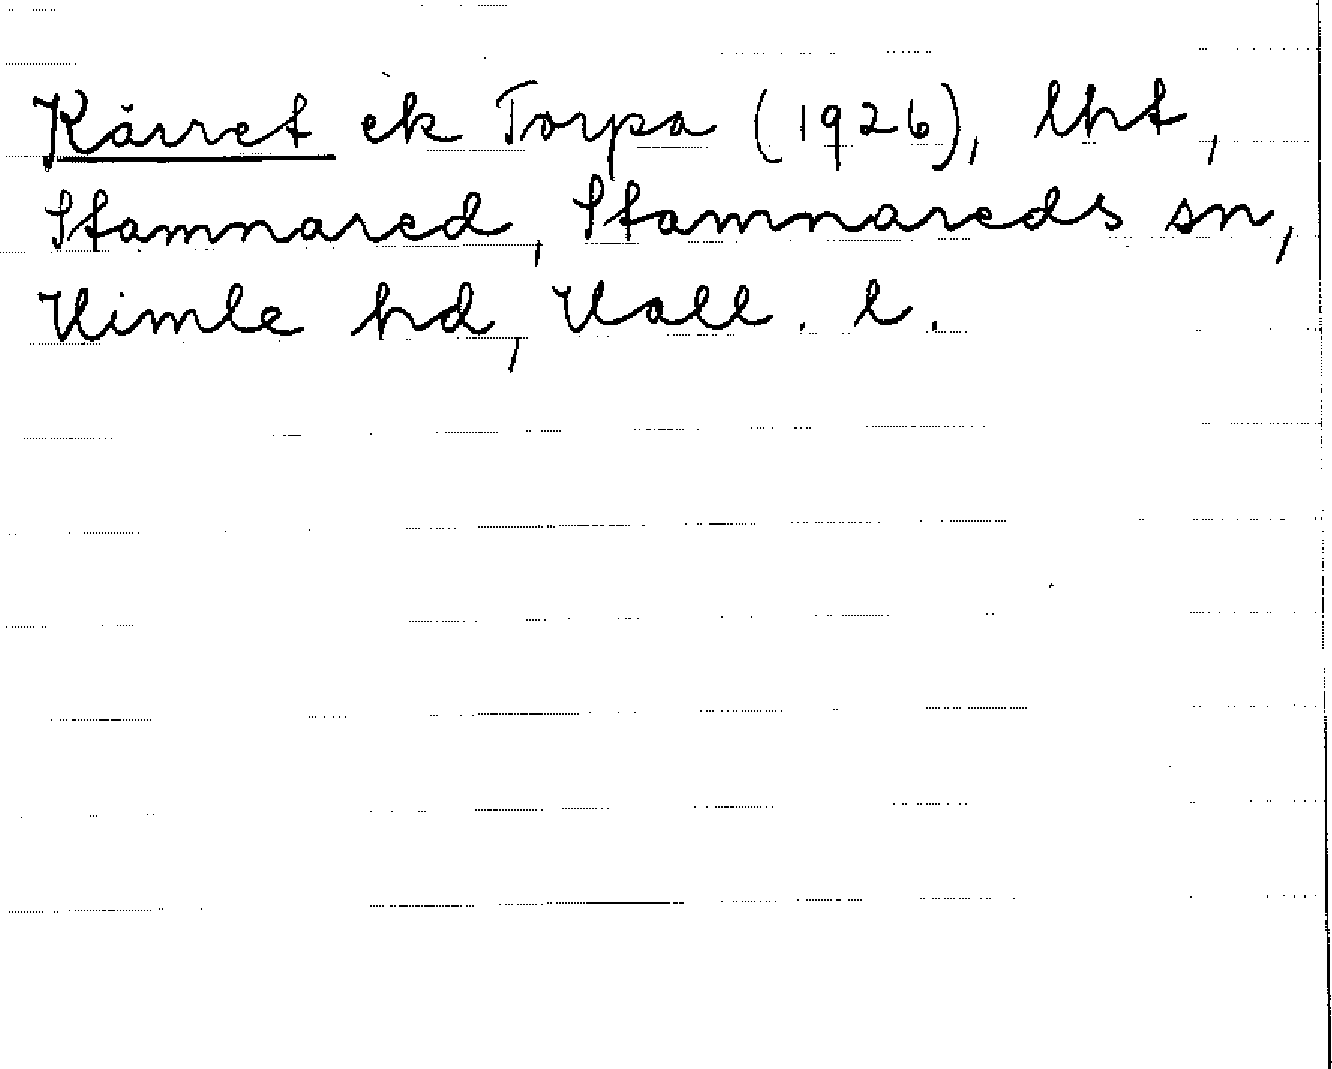 Kärret ek Torpa (1926), lht,
Stamnared, Stamnareds sn,
Himle hd, Hall. l.